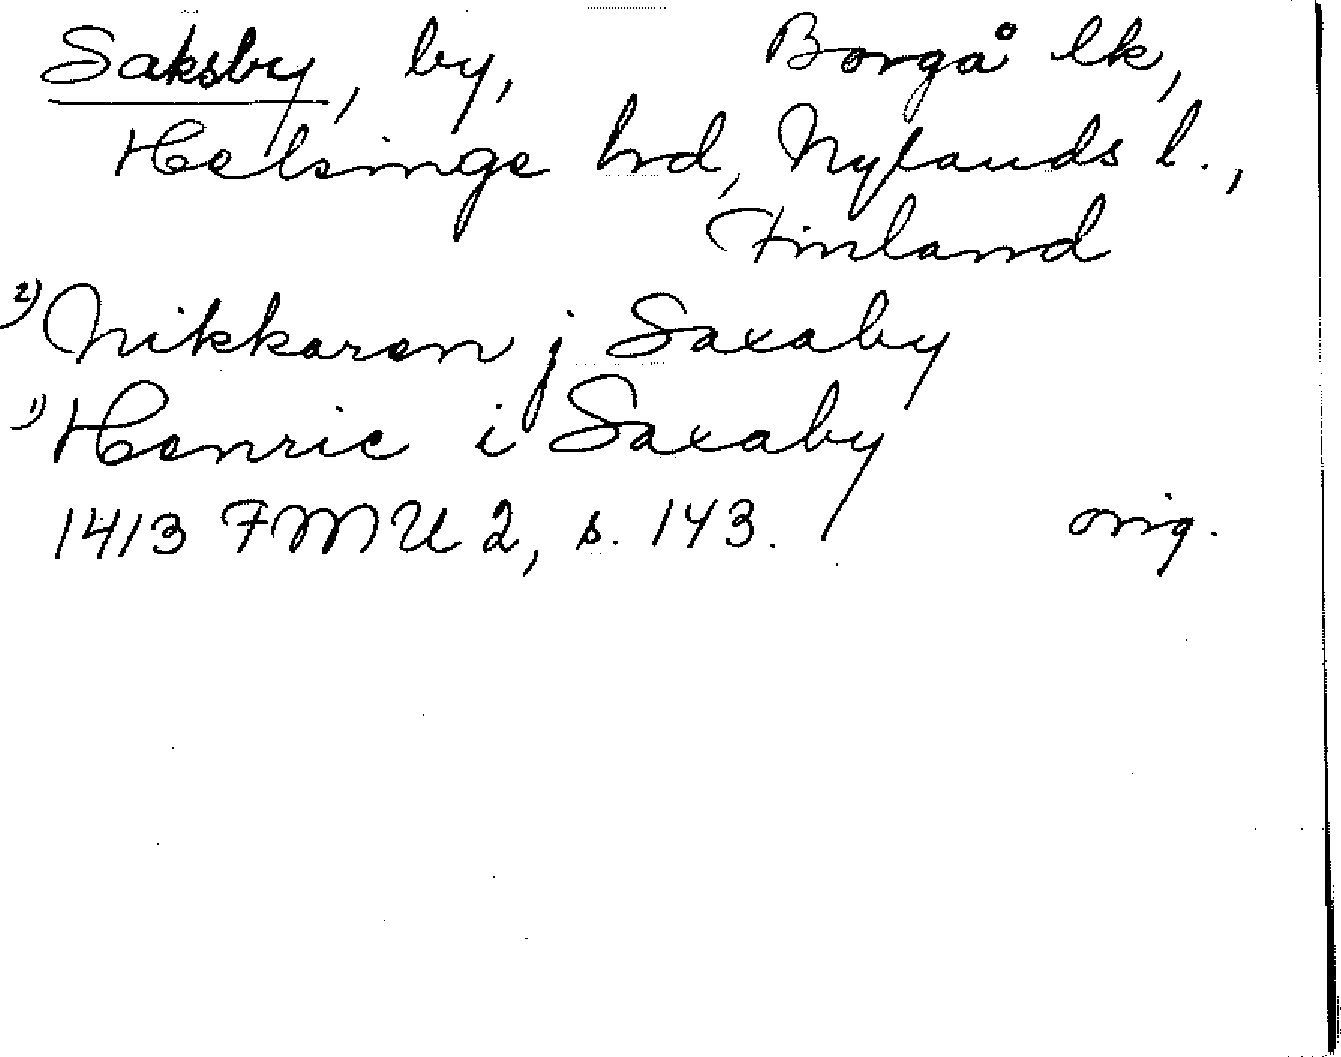 Saksby, by, Borgå lk,
Helsinge hrd, Nylands l.,
Finland
2) Nikkaren j Saxaby
1) Henric i Saxaby
1413 FMU 2, s. 143. orig.